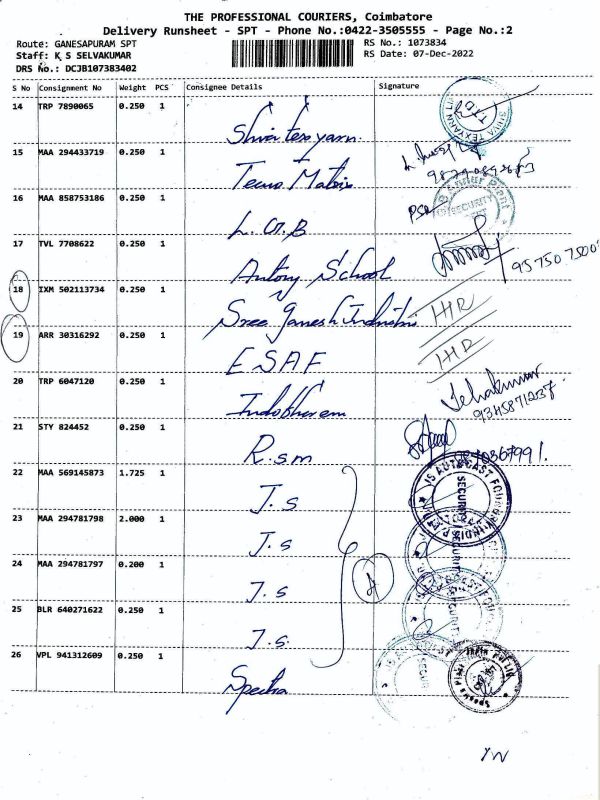 THE PROFESSIONAL COURIERS, Coimbatore
Delivery Runsheet - SPT - Phone No.:0422-3505555 - Page No.:2
Route: GANESAPURAM SPT RS No.: 1073834
Staff: K S SELVAKUMAR RS Date: 07-Dec-2022
DRS No.: DCJB107383402
S No Consignment No Weight PCS Consignee Details Signature
14 TRP 7890065 0.250 1
Shiva texyarn
15 MAA 294433719 0.250 1
Tecno Matrix
16 MAA 858753186 0.250 1
SECURITY
L.G.B
17 TVL 7708622 0.250 1
Antony School
18 IXM 502113734 0.250 1
Sree Ganesh Industri
IHR
19 ARR 30316292 0.250 1
ESAF
IHR
20 TRP 6047120 0.250 1
9345871237
21 STY 824452 0.250 1
R.sm
22 MAA 569145873 1.725 1
J.s
SECURITY
23 MAA 294781798 2.000 1
J.s
24 MAA 294781797 0.200 1
J.s
25 BLR 640271622 0.250 1
J.s.
26 VPL 941312609 0.250 1
Spectra